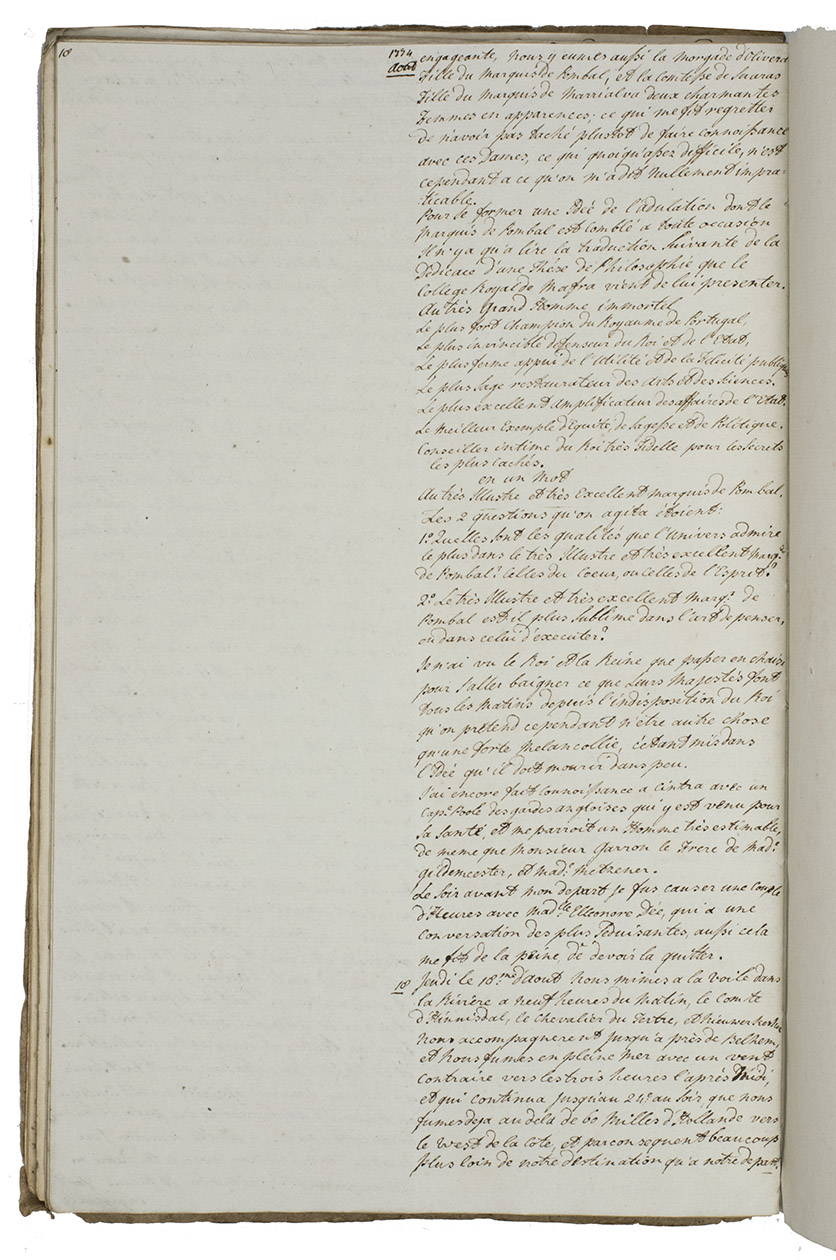 18
1774
Août
engageante, nous y eumes aussi la morgade d'Olivera
Fille du Marquis de Pombal, et la Comtesse de
Fille du Marquis de Marrialva deux charmantes
Femmes en apparences; ce qui me fit regretter
de n'avoir pas taché plustot de faire connoissance
avec ces Dames, ce qui quoiqu'assez difficile, n'est
cependant a ce qu'on m'a dit nullement impra-
ticable.
Pour se former une Idée de l'adulation dont le
Marquis de Pombal est comblé a toute occasion
Il n'y a qu'a lire la traduction suivante de la
Dedicace d'une Thése de Philosophie que le
College Royal de Mafra vient de lui presenter.
Au très Grand Homme immortel
Le plus fort Champion du Royaume de Portugal,
Le plus invincible défenseur du Roi et de l'Etat,
Le plus ferme appui de l'Utilité et de la Felicité publique
Le plus Sage restaurateur des Arts et des Sciences.
Le plus excellent Amplificateur des affaires de l'Etat.
Le Meilleur Exemple d'Equité, de Sagesse et de Politique.
Conseiller intime du Roi très Fidelle pour les Secrets
les plus cachés.
en un Mot
Au très Illustre et très Excellent Marquis de Pombal.
Les 2 questions qu'on agita étoient:
1º. Quelles sont les qualités que l'Univers admire
le plus dans le très Illustre et très excellent Marq.
de Pombal? Celles du Coeur, ou Celles de l'Esprit?
2º. Le très Illustre et très excellent Marq.s de
Pombal est il plus Sublime dans l'art de penser,
ou dans celui d'executer?
Je n'ai vu le Roi et la Reine que passer en chaise
pour s'aller baigner ce que Leurs Majestés font
tous les Matins depuis l'indisposition du Roi
qu'on prétend cependant n'être autre chose
qu'une forte Melancollie, s'étant mis dans
l'Idée qu'il doit mourir dans peu.
J'ai encore fait Connoissance a Cintra avec un
Cap.e Poole des gardes angloises qui y est venu pour
sa Santé, et me parroit un Homme très estimable,
de meme que Monsieur Garron le Frere de Mad.e
Gildemeester, et Mad.e Metzener.
Le Soir avant mon depart je fus causer une Couple
d'Heures avec Mad.lle Elleonore Dée, qui a une
Conversation des plus Seduisantes, aussi cela
me fit de la peine, de devoir la quitter.
18 Jeudi le 18.me d'aout nous mimes a la voile dans
la Rivière a neuf heures du Matin, le Comte
d'Hinnisdal, le Chevalier du Tertre, et Nieuwerkerke
nous accompagnerent jusqu'a près de Belhem,
et nous fumes en pleine Mer avec un vent
contraire vers les trois heures l'après Midi,
et qui continua jusqu'au 24.e au Soir, que nous
fumes deja au dela de 60 Milles d'Hollande vers
le West de la Cote, et par consequent beaucoup
plus loin de notre destination qu'a notre depart.